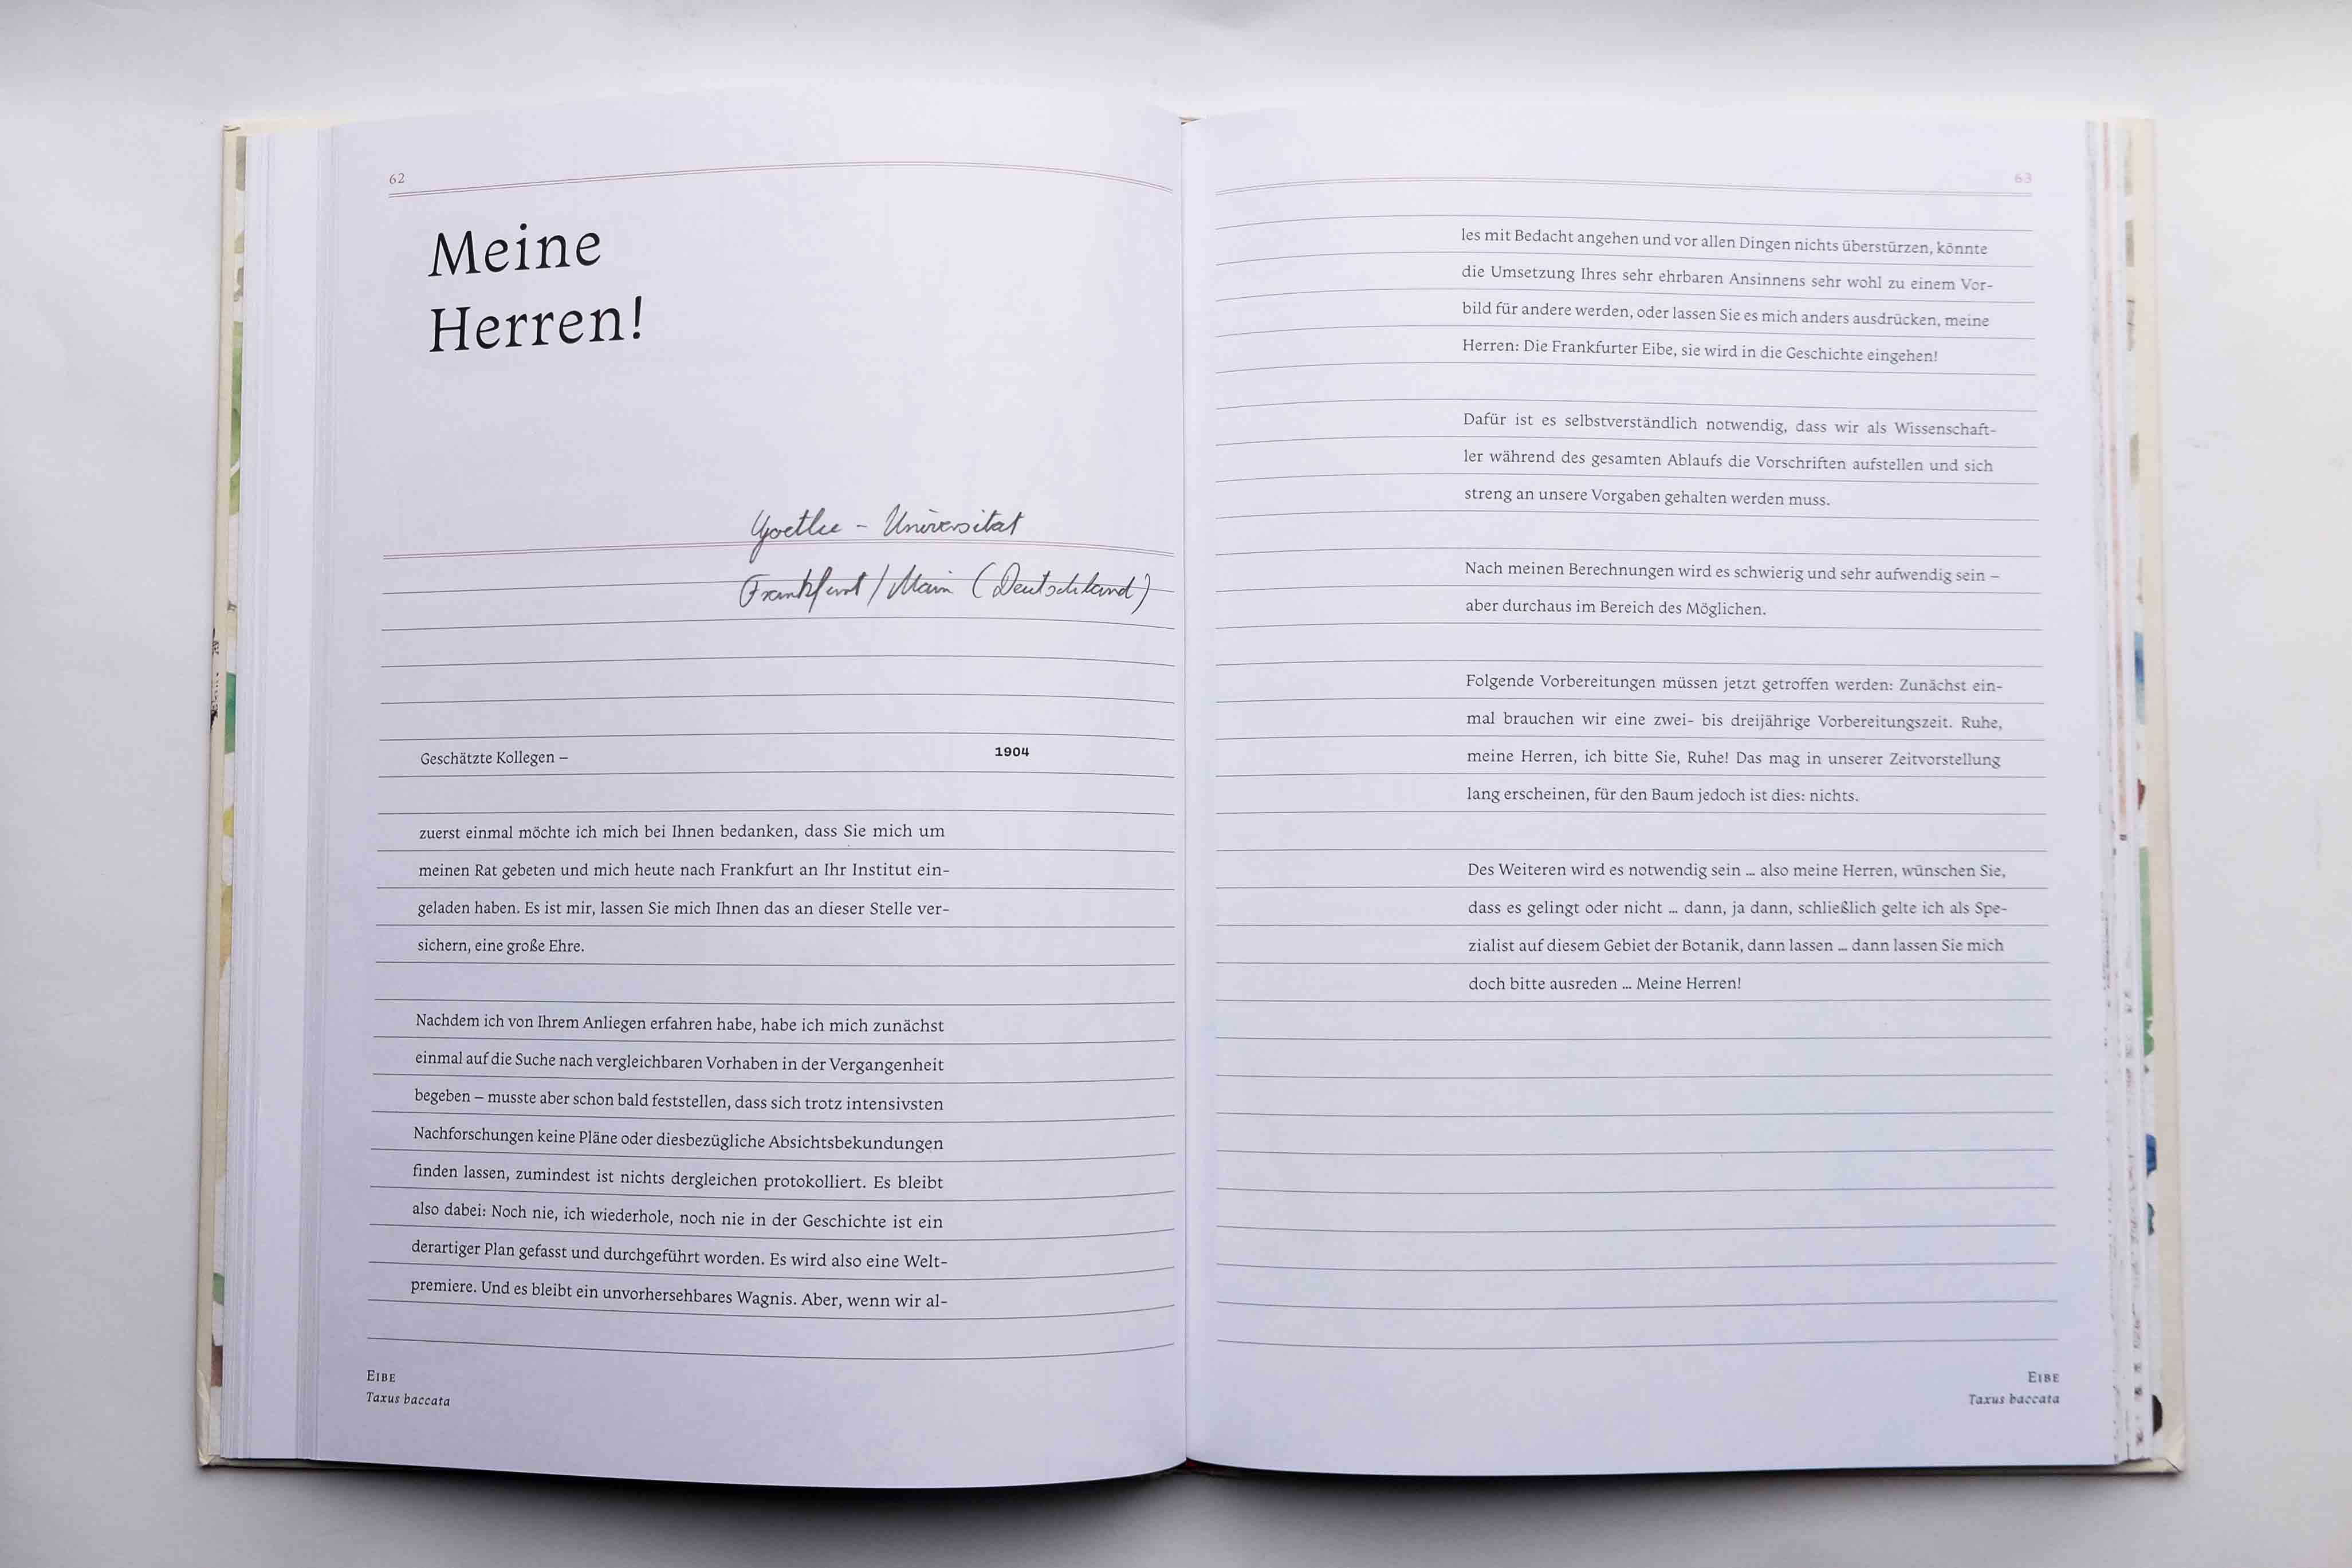 62
Meine
Herren!
Goethe - Universität
Frankfurt / Main (Deutschland)
Geschätzte Kollegen –
1904
zuerst einmal möchte ich mich bei Ihnen bedanken, dass Sie mich um
meinen Rat gebeten und mich heute nach Frankfurt an Ihr Institut ein-
geladen haben. Es ist mir, lassen Sie mich Ihnen das an dieser Stelle ver-
sichern, eine große Ehre.
Nachdem ich von Ihrem Anliegen erfahren habe, habe ich mich zunächst
einmal auf die Suche nach vergleichbaren Vorhaben in der Vergangenheit
begeben – musste aber schon bald feststellen, dass sich trotz intensivsten
Nachforschungen keine Pläne oder diesbezügliche Absichtsbekundungen
finden lassen, zumindest ist nichts dergleichen protokolliert. Es bleibt
also dabei: Noch nie, ich wiederhole, noch nie in der Geschichte ist ein
derartiger Plan gefasst und durchgeführt worden. Es wird also eine Welt-
premiere. Und es bleibt ein unvorhersehbares Wagnis. Aber, wenn wir al-
EIBE
Taxus baccata
63
les mit Bedacht angehen und vor allen Dingen nichts überstürzen, könnte
die Umsetzung Ihres sehr ehrbaren Ansinnens sehr wohl zu einem Vor-
bild für andere werden, oder lassen Sie es mich anders ausdrücken, meine
Herren: Die Frankfurter Eibe, sie wird in die Geschichte eingehen!
Dafür ist es selbstverständlich notwendig, dass wir als Wissenschaft-
ler während des gesamten Ablaufs die Vorschriften aufstellen und sich
streng an unsere Vorgaben gehalten werden muss.
Nach meinen Berechnungen wird es schwierig und sehr aufwendig sein –
aber durchaus im Bereich des Möglichen.
Folgende Vorbereitungen müssen jetzt getroffen werden: Zunächst ein-
mal brauchen wir eine zwei- bis dreijährige Vorbereitungszeit. Ruhe,
meine Herren, ich bitte Sie, Ruhe! Das mag in unserer Zeitvorstellung
lang erscheinen, für den Baum jedoch ist dies: nichts.
Des Weiteren wird es notwendig sein … also meine Herren, wünschen Sie,
dass es gelingt oder nicht … dann, ja dann, schließlich gelte ich als Spe-
zialist auf diesem Gebiet der Botanik, dann lassen … dann lassen Sie mich
doch bitte ausreden … Meine Herren!
EIBE
Taxus baccata